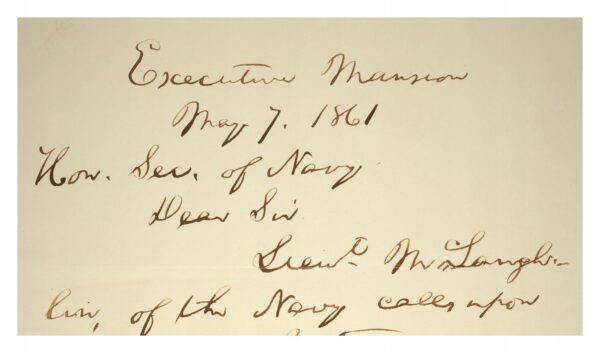 Executive Mansion
May 7. 1861
Hon. Sec. of Navy
Dear Sir
Lieut. McLaugh-
lin, of the Navy calls upon